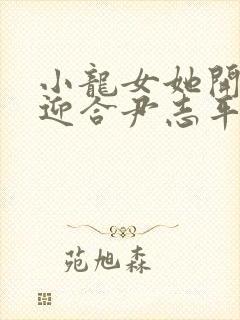 小龍女她開
迎合尹志平
苑旭森